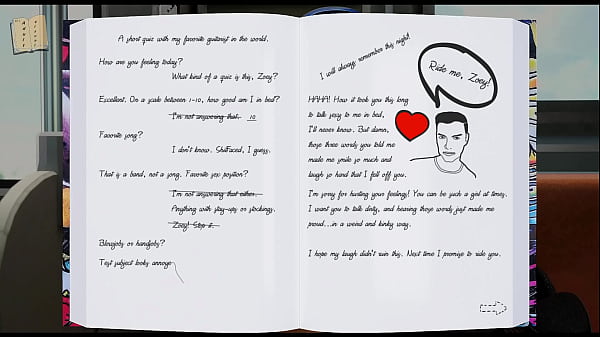 A short quiz with my favorite guitarist in the world.
How are you feeling today?
What kind of a quiz is this, Zoey?
Excellent. On a scale between 1-10, how good am I in bed?
I'm not answering that. 10
Favorite song?
I don't know. Shitfaced, I guess.
That is a band, not a song. Favorite sex position?
I'm not answering that either.
Anything with stay-ups or stockings.
Zoey! Stop it.
Blowjob or handjob?
Test subject looks annoye
I will always remember this night!
Ride me, Zoey!
HAHA! How it took you this long
to talk sexy to me in bed,
I'll never know. But damn,
those three words you told me
made me smile so much and
laugh so hard that I fell off you.
I'm sorry for hurting your feelings! You can be such a girl at times.
I want you to talk dirty, and hearing those words just made me
proud...in a weird and kinky way.
I hope my laugh didn't ruin this. Next time I promise to ride you.